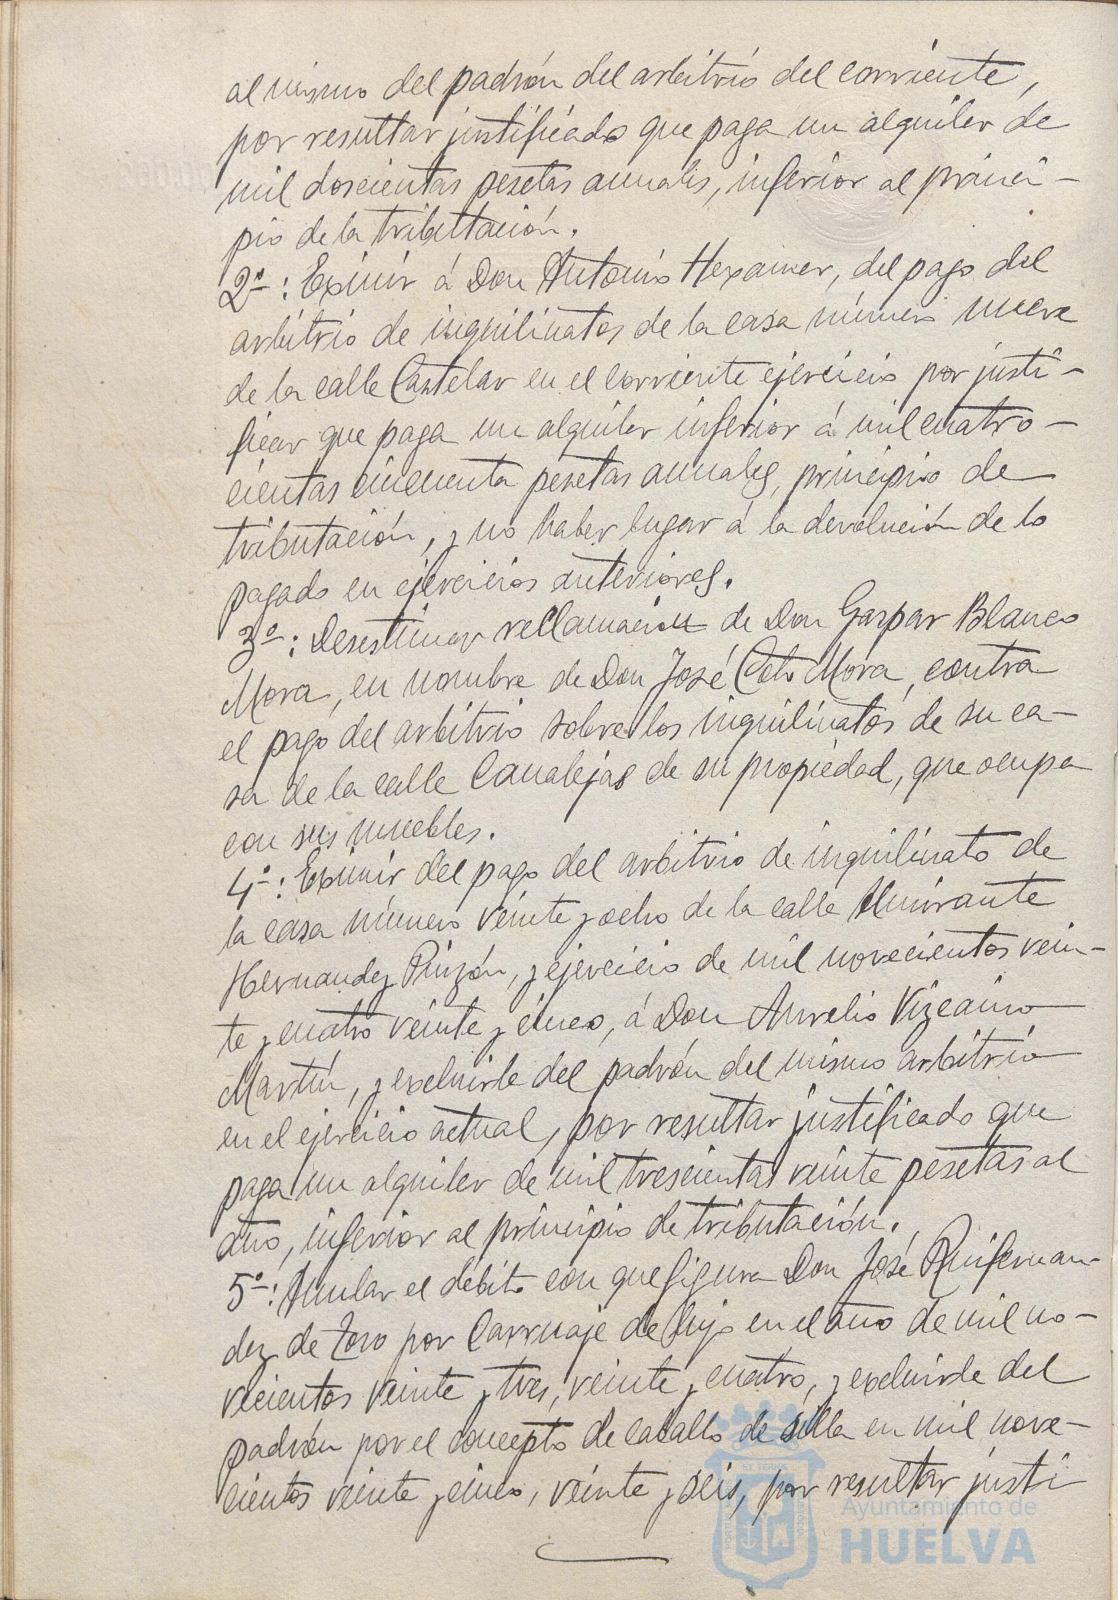 al mismo del padrón del arbitrio del corriente,
por resultar justificado que paga un alquiler de
mil doscientas pesetas anuales, inferior al princi-
pio de la tributtación.
2º: Eximir á Don Antonio Hexamer, del pago del
arbitrio de inquilinatos de la casa número nueve
de la calle Castelar en el corriente ejercicio por justi-
ficar que paga un alquiler inferior á mil cuatro-
cientas cincuenta pesetas anuales, principio de
tributación, y no haber lugar á la devolución de lo
pagado en ejercicios anteriores.
3º: Desestimar reclamación de Don Gaspar Blanco
Mora, en nombre de Don José Mora, contra
el pago del arbitrio sobre los inquilinatos de su ca-
sa de la calle Canalejas de su propiedad, que ocupa
con sus muebles.
4º: Eximir del pago del arbitrio de inquilinato de
la casa número veinte y ocho de la calle Almirante
Hernandez Pinzón, y ejercicio de mil novecientos vein-
te y cuatro veinte y cinco, á Don Aurelio Vizcaino
Martín, y excluirle del padrón del mismo arbitrio
en el ejercicio actual, por resultar justificado que
paga un alquiler de mil trescientas veinte pesetas al
año, inferior al principio de tributación.
5º: Anular el débito con que figura Don José Ruifernan-
dez de Toro por Carruaje de lujo en el año de mil no-
vecientos veinte y tres, veinte y cuatro, y excluirle del
padrón por el concepto de caballo de silla en mil nove-
cientos veinte y cinco, veinte y seis, por resultar justi
Ayuntamiento de
HUELVA